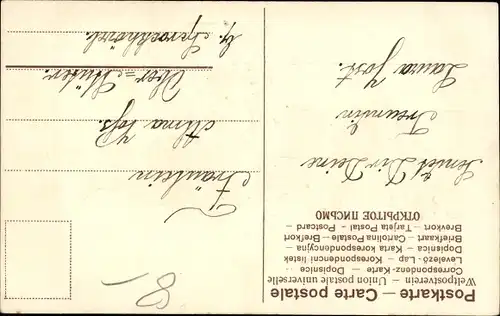 Postkarte — Carte postale
Weltpostverein — Union postale universelle
Correspondenz-Karte — Dopisnice
Levelező-Lap — Korespondenční lístek
Dopisnica — Karta korespondencyjna
Briefkaart — Cartolina Postale — Brefkort
Brevkort — Tarjeta Postal — Postcard
ОТКРЫТОЕ ПИСЬМО
Sendet Dir Deine
Freundin
Laura Jost.
Fräulein
Alma Voß.
Ober=
b. Sprockhövel.
8-